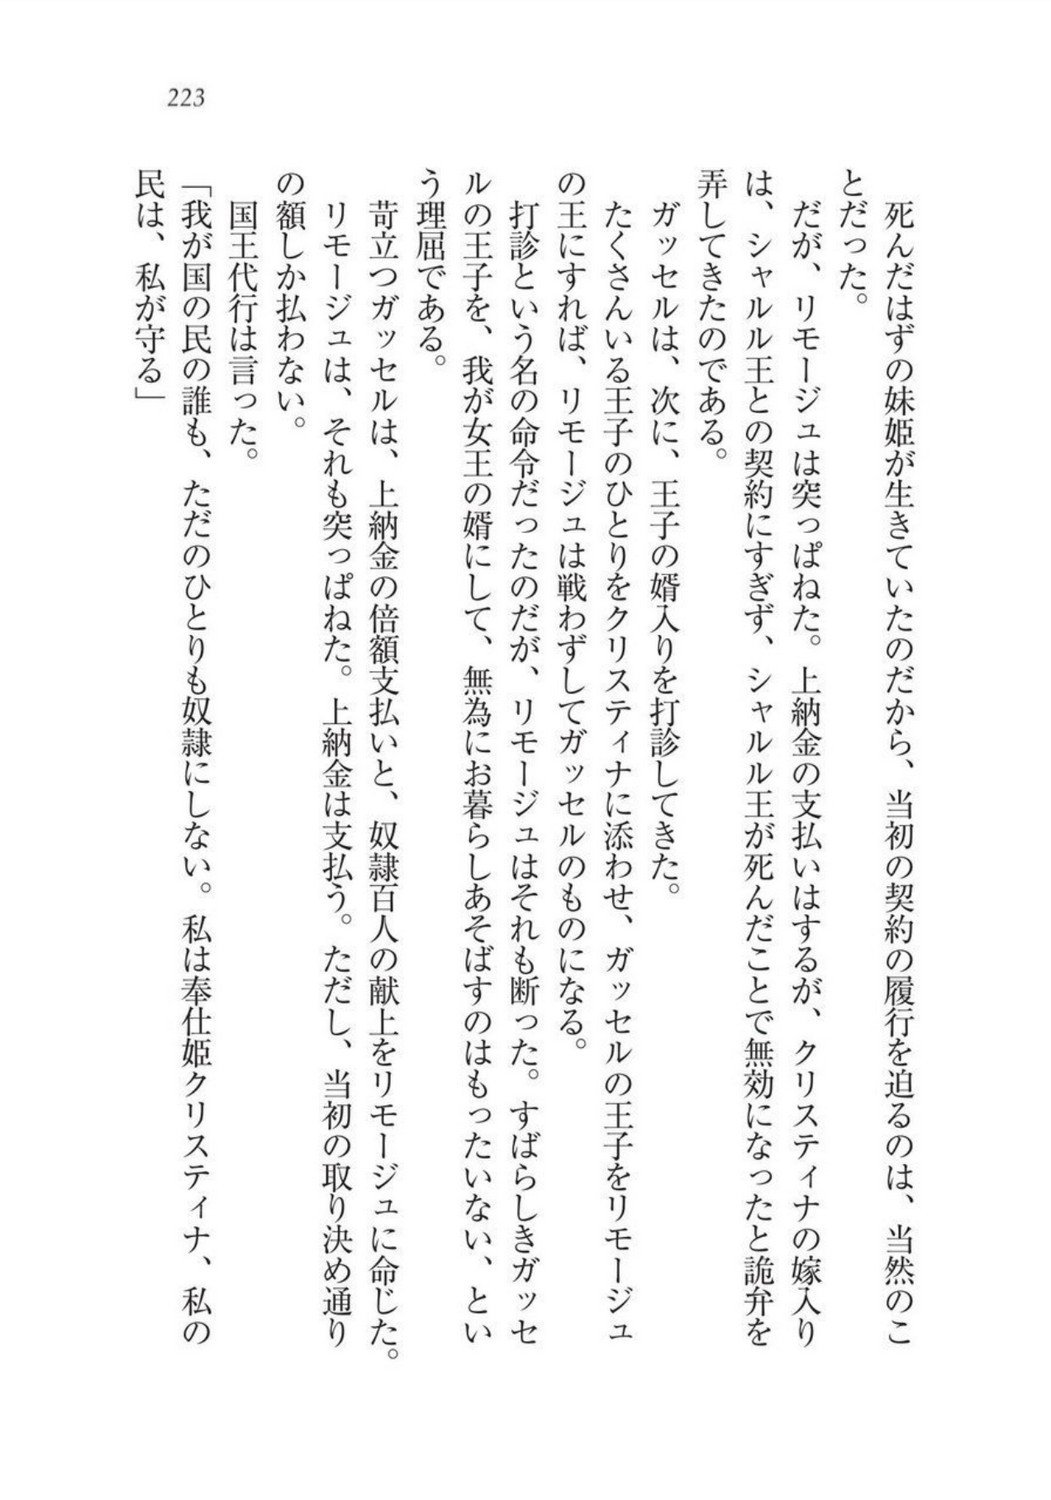 223
　死んだはずの妹姫が生きていたのだから、当初の契約の履行を迫るのは、当然のこ
とだった。
　だが、リモージュは突っぱねた。上納金の支払いはするが、クリスティナの嫁入り
は、シャルル王との契約にすぎず、シャルル王が死んだことで無効になったと詭弁を
弄してきたのである。
　ガッセルは、次に、王子の婿入りを打診してきた。
　たくさんいる王子のひとりをクリスティナに添わせ、ガッセルの王子をリモージュ
の王にすれば、リモージュは戦わずしてガッセルのものになる。
　打診という名の命令だったのだが、リモージュはそれも断った。すばらしきガッセ
ルの王子を、我が女王の婿にして、無為にお暮らしあそばすのはもったいない、とい
う理屈である。
　苛立つガッセルは、上納金の倍額支払いと、奴隷百人の献上をリモージュに命じた。
　リモージュは、それも突っぱねた。上納金は支払う。ただし、当初の取り決め通り
の額しか払わない。
　国王代行は言った。
「我が国の民の誰も、ただのひとりも奴隷にしない。私は奉仕姫クリスティナ、私の
民は、私が守る」